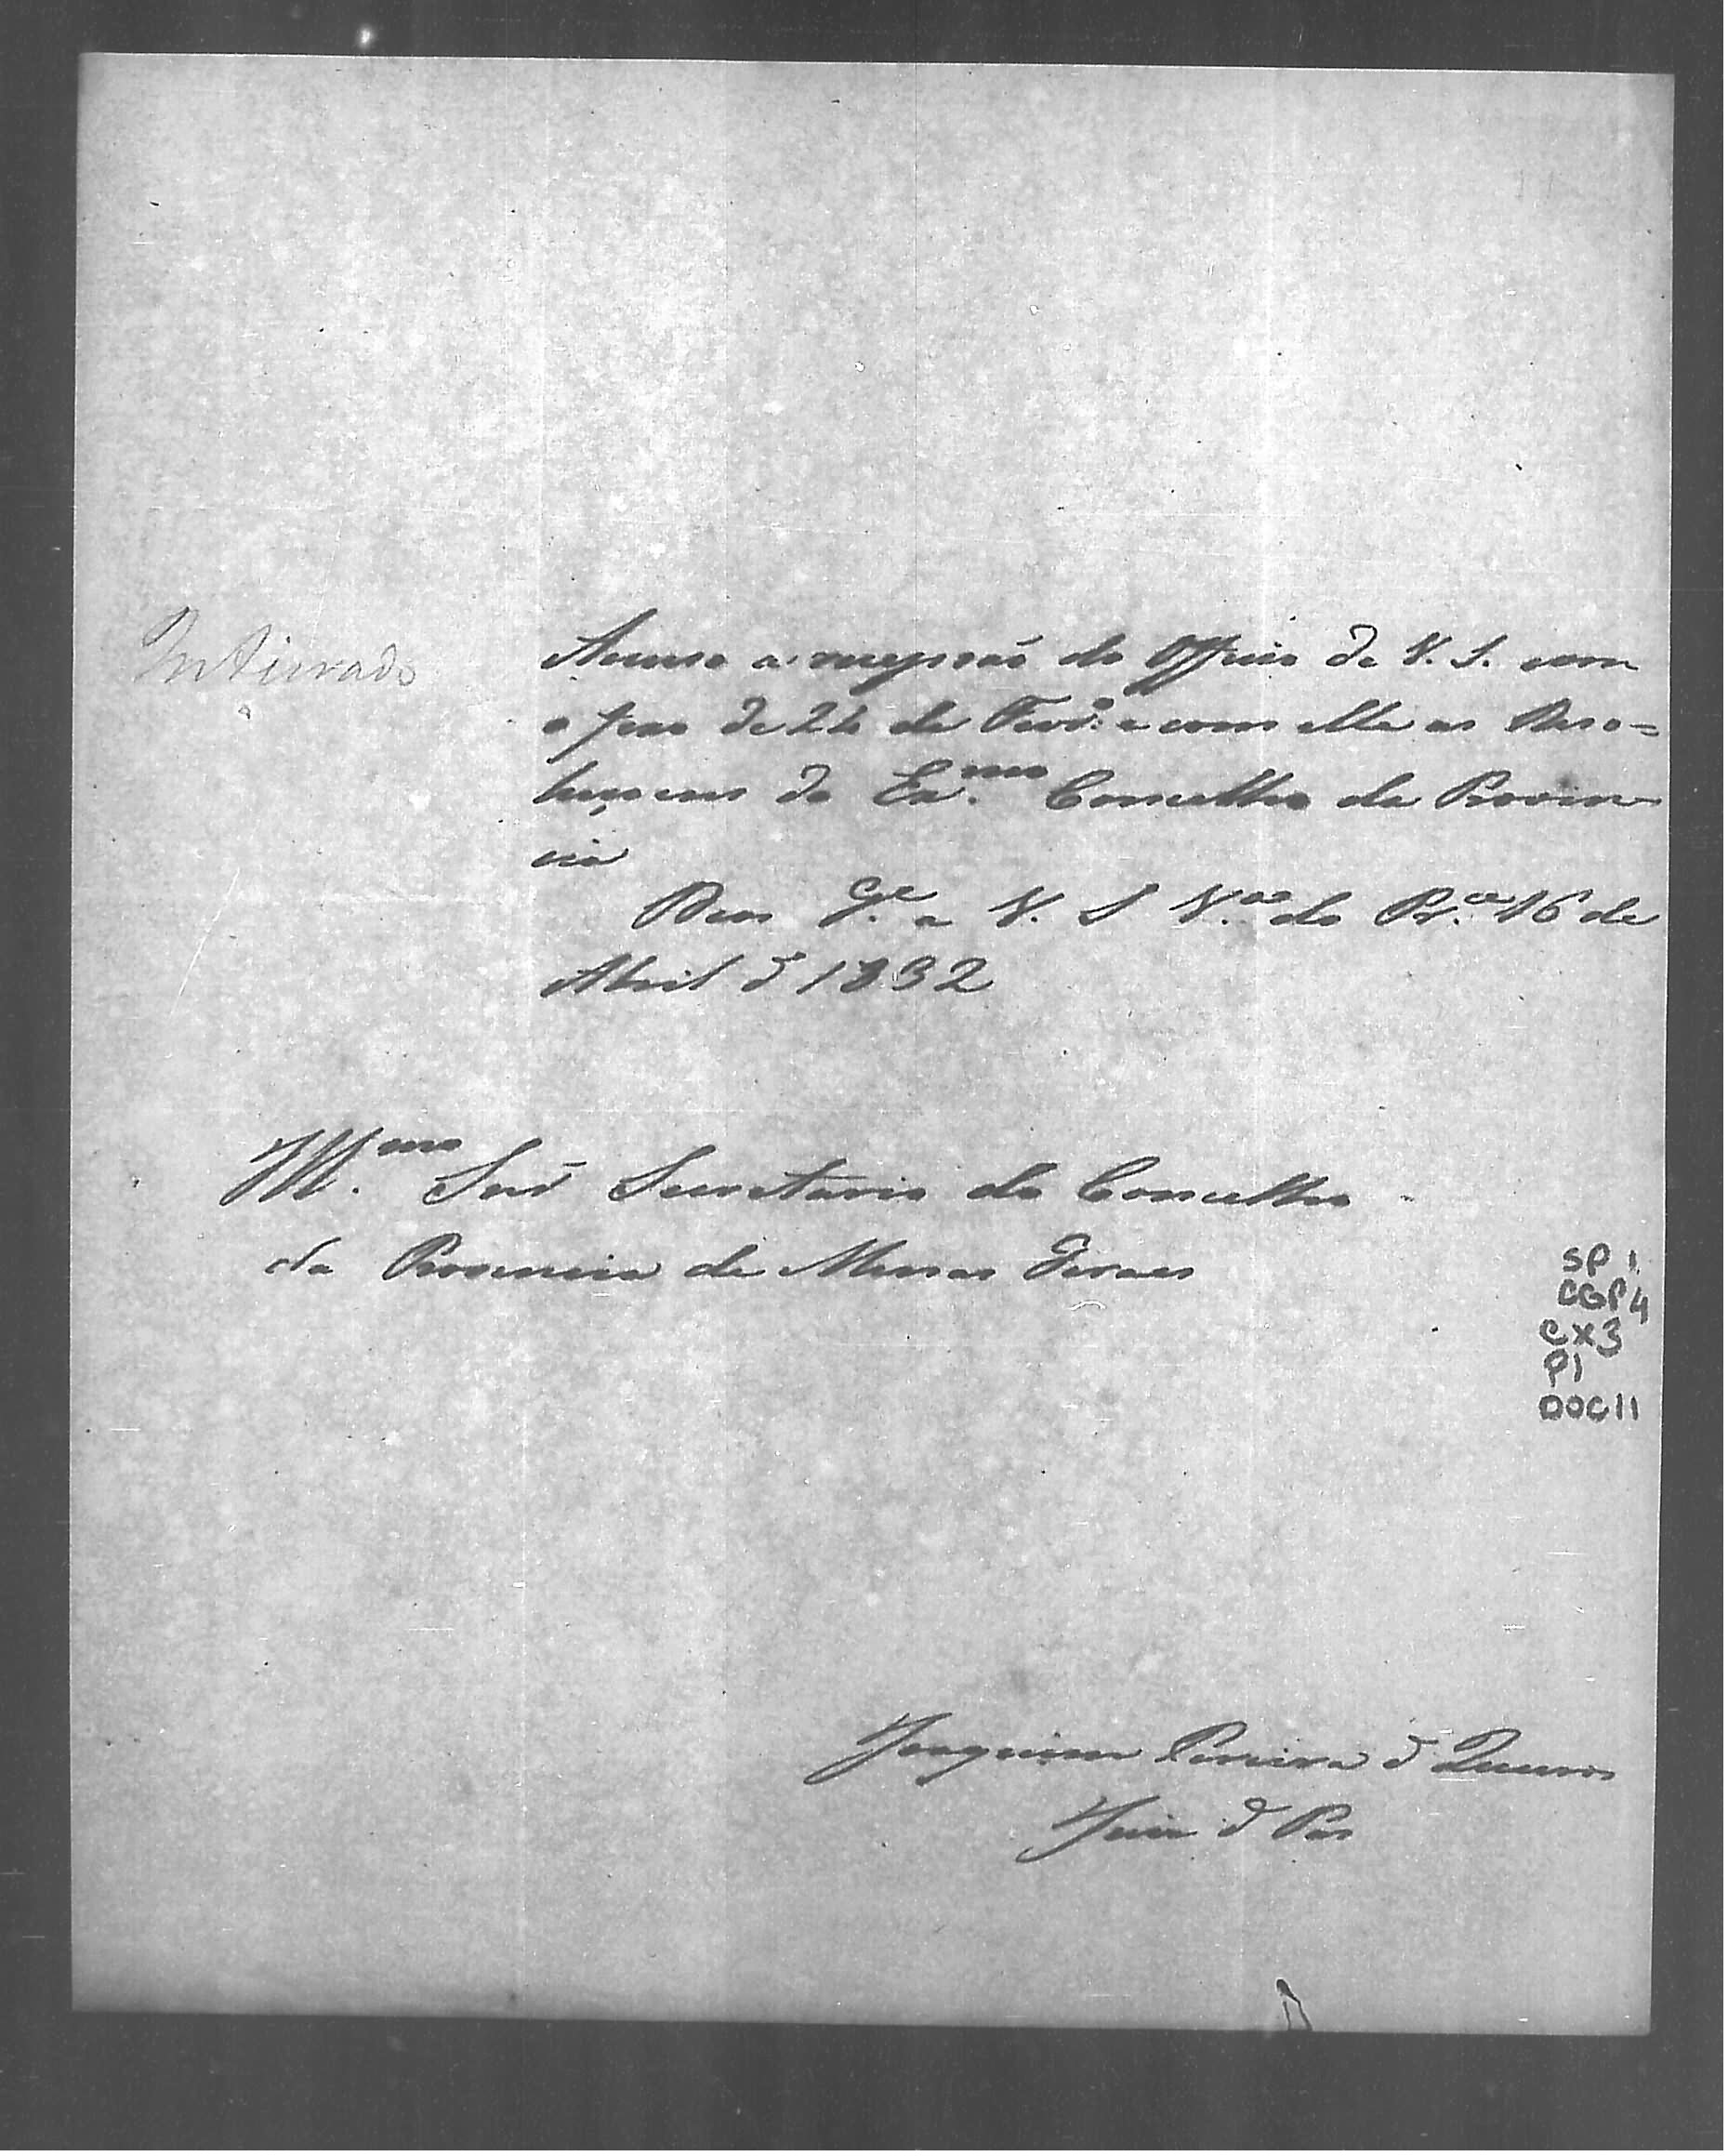 Inteirado
Acuso a recepção do Officio de V. S. com
o feixo de 24 de Fevr.º e com elle as Reso=
luçoens do Ex.mo Concelho da Provin
cia
Deos G.e a V. S. V.a do Pr.e 16 de
Abril d 1832
Ill.mo Snr Secretario do Concelho
da Provincia de Minas Geraes
SP 1
CGP 4
CX3
P1
DOC11
Joaquim Pereira d Queiros
Juiz d Pas